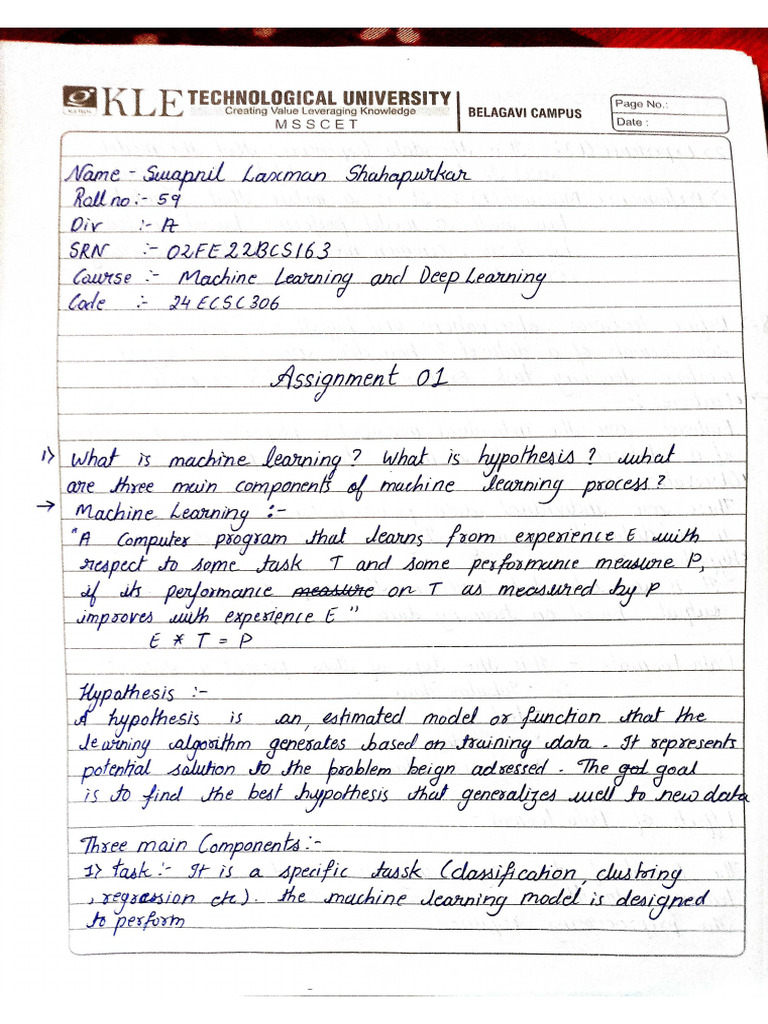 KLE TECHNOLOGICAL UNIVERSITY
Creating Value Leveraging Knowledge
MSSCET
BELAGAVI CAMPUS
Page No.:
Date :
Name - Swapnil Laxman Shahapurkar
Roll no :- 59
Div :- A
SRN :- 02FE22BCS163
Course :- Machine Learning and Deep Learning
Code :- 24ECSC306
Assignment 01
1) What is machine learning? What is hypothesis? what
are three main components of machine learning process?
→ Machine Learning :-
"A Computer program that learns from experience E with
respect to some task T and some performance measure P,
if its performance measure on T as measured by P
improves with experience E"
E * T = P
Hypothesis :-
A hypothesis is an, estimated model or function that the
learning algorithm generates based on training data. It represents
potential solution to the problem beign adressed. The god goal
is to find the best hypothesis that generalizes well to new data
Three main Components:-
1) task :- It is a specific tassk (classification, clustring
, regression etc). the machine learning model is designed
to perform